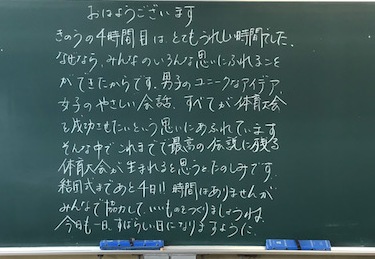 おはようございます
きのうの4時間目は、とてもうれしい時間でした。
なぜなら、みんなのいろんな思いにふれること
ができたからです。男子のユニークなアイデア、
女子のやさしい会話、すべてが体育大会
を成功させたいという思いにあふれています。
そんな中でこれまでで最高の伝説に残る
体育大会が生まれると思うとたのしみです。
結団式まであと4日!! 時間はありませんが
みんなで協力して、いいものをつくりましょうね。
今日も一日、すばらしい日になりますように。